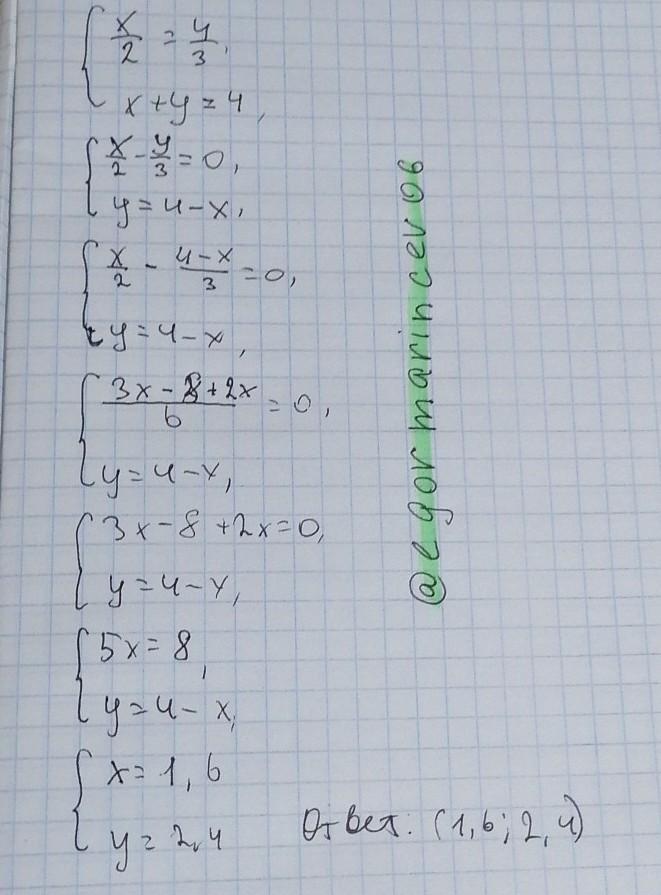 x/2 = y/3,
x + y = 4,
x/2 - y/3 = 0,
y = 4 - x,
x/2 - (4-x)/3 = 0,
y = 4 - x,
(3x - 8 + 2x)/6 = 0,
y = 4 - x,
3x - 8 + 2x = 0,
y = 4 - x,
5x = 8,
y = 4 - x,
x = 1,6
y = 2,4 Ответ: (1,6; 2,4)
@egormarincev06